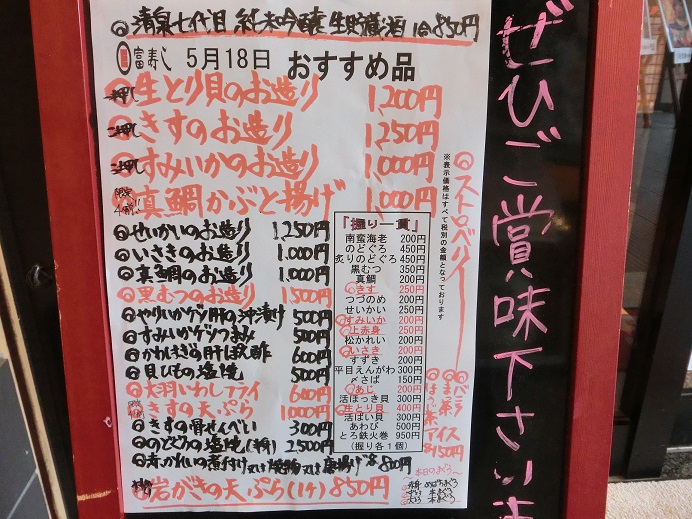 ◎清泉七代目 純米吟醸 生貯蔵酒 1合850円
富寿し 5月18日 おすすめ品
一押し ◎生とり貝のお造り 1,200円
二押し ◎きすのお造り 1,250円
三押し ◎すみいかのお造り 1,000円
限定4個!! ◎真鯛かぶと揚げ 1,000円
◎せいかいのお造り 1,250円
◎いさきのお造り 1,000円
◎真鯛のお造り 1,000円
◎黒むつのお造り 1,500円
◎やりいかゲソ肝の沖漬け 500円
◎すみいかゲソつまみ 500円
◎かわはぎ肝ぽん酢 600円
◎貝ひもの塩焼 500円
◎大羽いわしフライ 600円
◎きすの天ぷら 1,000円
◎きすの骨せんべい 300円
◎のどぐろの塩焼(1本) 2500円
◎赤かれいの煮付け 又は 焼物 又は 唐揚げ 各800円
◎岩がきの天ぷら(1ケ)850円
「握り一貫」
南蛮海老 200円
のどぐろ 450円
炙りのどぐろ 450円
黒むつ 350円
真鯛 200円
◎きす 250円
つづのめ 200円
せいかい 250円
◎すみいか 200円
◎上赤身 250円
松かれい 200円
◎いさき 200円
すずき 200円
平目えんがわ 300円
〆さば 150円
◎あじ 200円
活ほっき貝 300円
◎生とり貝 400円
活ばい貝 300円
あわび 500円
とろ鉄火巻 950円
(握り各1個)
※表示価格はすべて税別の金額となっております
◎ストロベリー
◎バニラ
◎抹茶
◎ほうじ茶
アイス
各150円
〜本日のまぐろ〜
ぜひご賞味下さいま